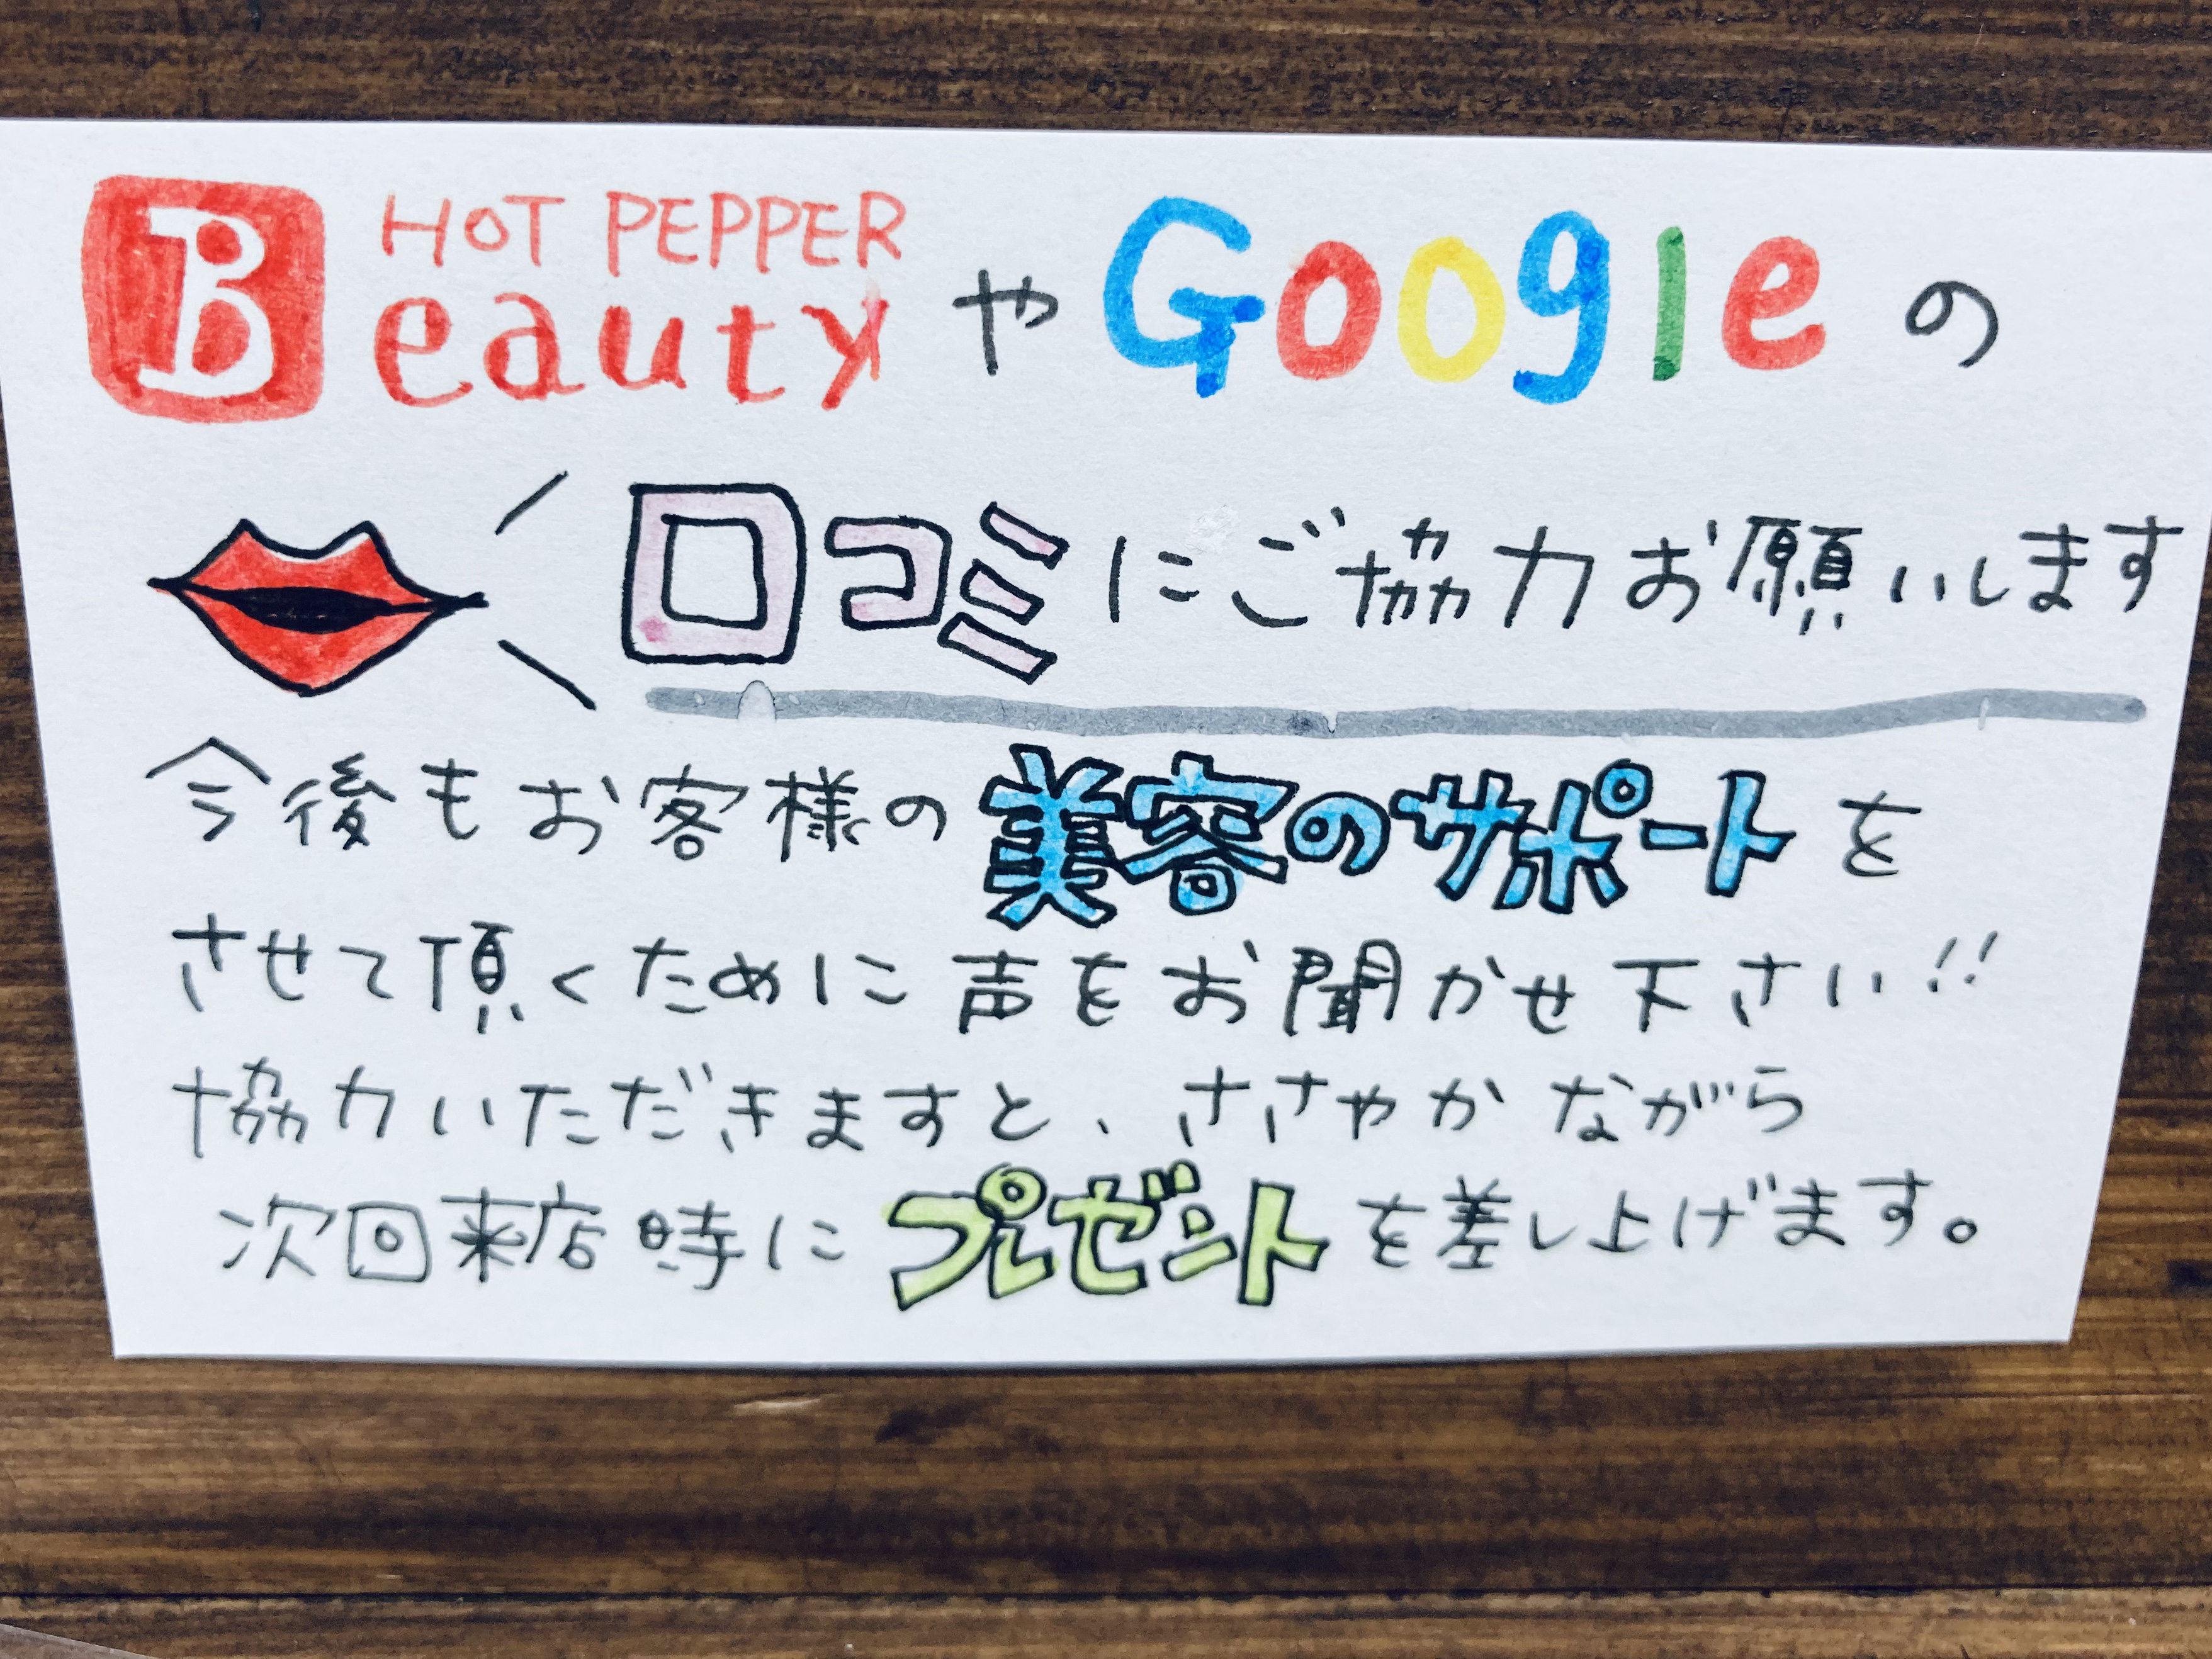 B HOT PEPPER Beauty や Google の
口コミにご協力お願いします
今後もお客様の美容のサポートを
させて頂くために声をお聞かせ下さい!!
協力いただきますと、ささやかながら
次回来店時にプレゼントを差し上げます。